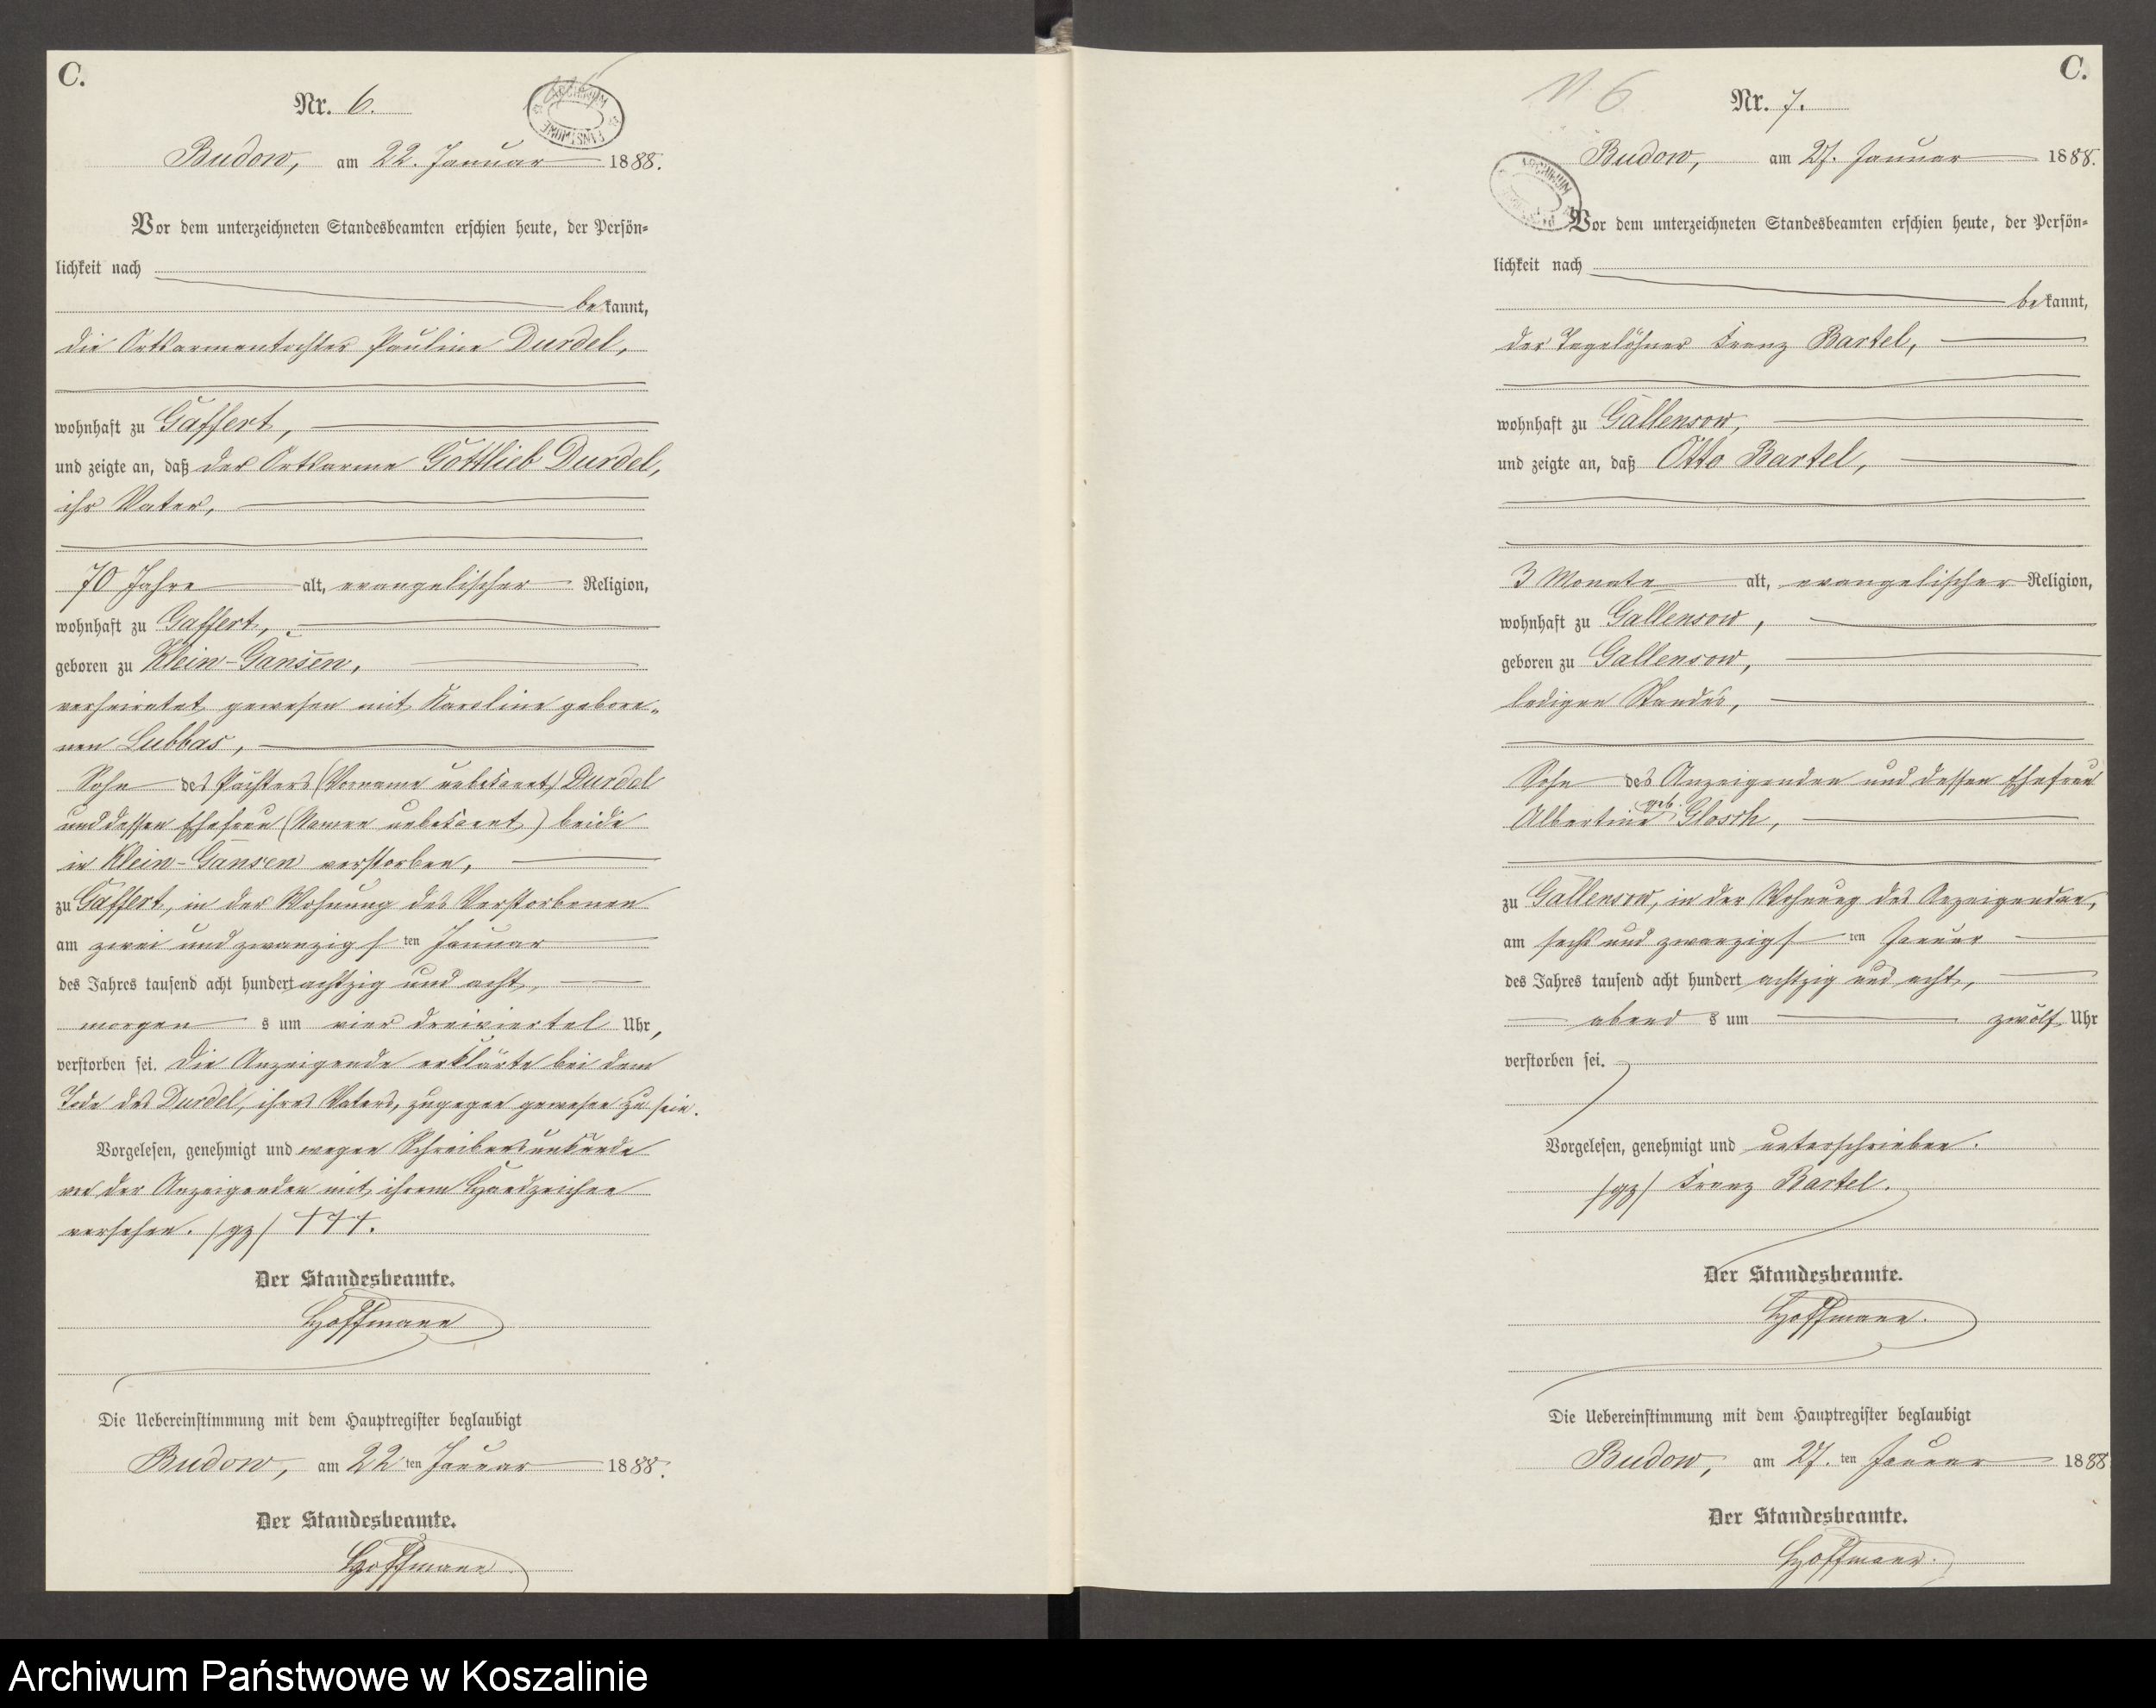 C.
Nr. 6.
ARCHIWUM PAŃSTWOWE
Budow, am 22. Januar 1888.
Vor dem unterzeichneten Standesbeamten erschien heute, der Persön-
lichkeit nach
bekannt,
die Ortsarmentochter Pauline Durdel,
wohnhaft zu Gaffert,
und zeigte an, daß der Ortsarme Gottlieb Durdel,
ihr Vater,
70 Jahre alt, evangelischer Religion,
wohnhaft zu Gaffert,
geboren zu Klein-Gansen,
verheiratet gewesen mit Karoline gebore-
nen Lubbas,
Sohn des Pächters (Vorname unbekannt) Durdel
und dessen Ehefrau (Namen unbekannt) beide
in Klein-Gansen verstorben,
zu Gaffert, in der Wohnung des Verstorbenen
am zwei und zwanzigsten Januar
des Jahres tausend acht hundert achtzig und acht,
morgens um vier dreiviertel Uhr,
verstorben sei. Die Anzeigende erklärte bei dem
Tode des Durdel, ihres Vaters, zugegen gewesen zu sein.
Vorgelesen, genehmigt und wegen Schreibensunkunde
von der Anzeigenden mit ihrem Handzeichen
versehen. /gz/ †††.
Der Standesbeamte.
Hoffmann
Die Uebereinstimmung mit dem Hauptregister beglaubigt
Budow, am 22ten Januar 1888.
Der Standesbeamte.
Hoffmann.
C.
N 6
Nr. 7.
ARCHIWUM
Budow, am 27. Januar 1888.
Vor dem unterzeichneten Standesbeamten erschien heute, der Persön-
lichkeit nach
bekannt,
der Tagelöhner Franz Bartel,
wohnhaft zu Gallensow,
und zeigte an, daß Otto Bartel,
3 Monate alt, evangelischer Religion,
wohnhaft zu Gallensow,
geboren zu Gallensow,
ledigen Standes,
Sohn des Anzeigenden und dessen Ehefrau
Albertine geb. Glosch,
zu Gallensow, in der Wohnung des Anzeigenden,
am sechs und zwanzigsten Januar
des Jahres tausend acht hundert achtzig und acht,
abends um zwölf Uhr
verstorben sei.
Vorgelesen, genehmigt und unterschrieben.
/gz/ Franz Bartel.
Der Standesbeamte.
Hoffmann.
Die Uebereinstimmung mit dem Hauptregister beglaubigt
Budow, am 27.ten Januar 1888
Der Standesbeamte.
Hoffmann.
Archiwum Państwowe w Koszalinie